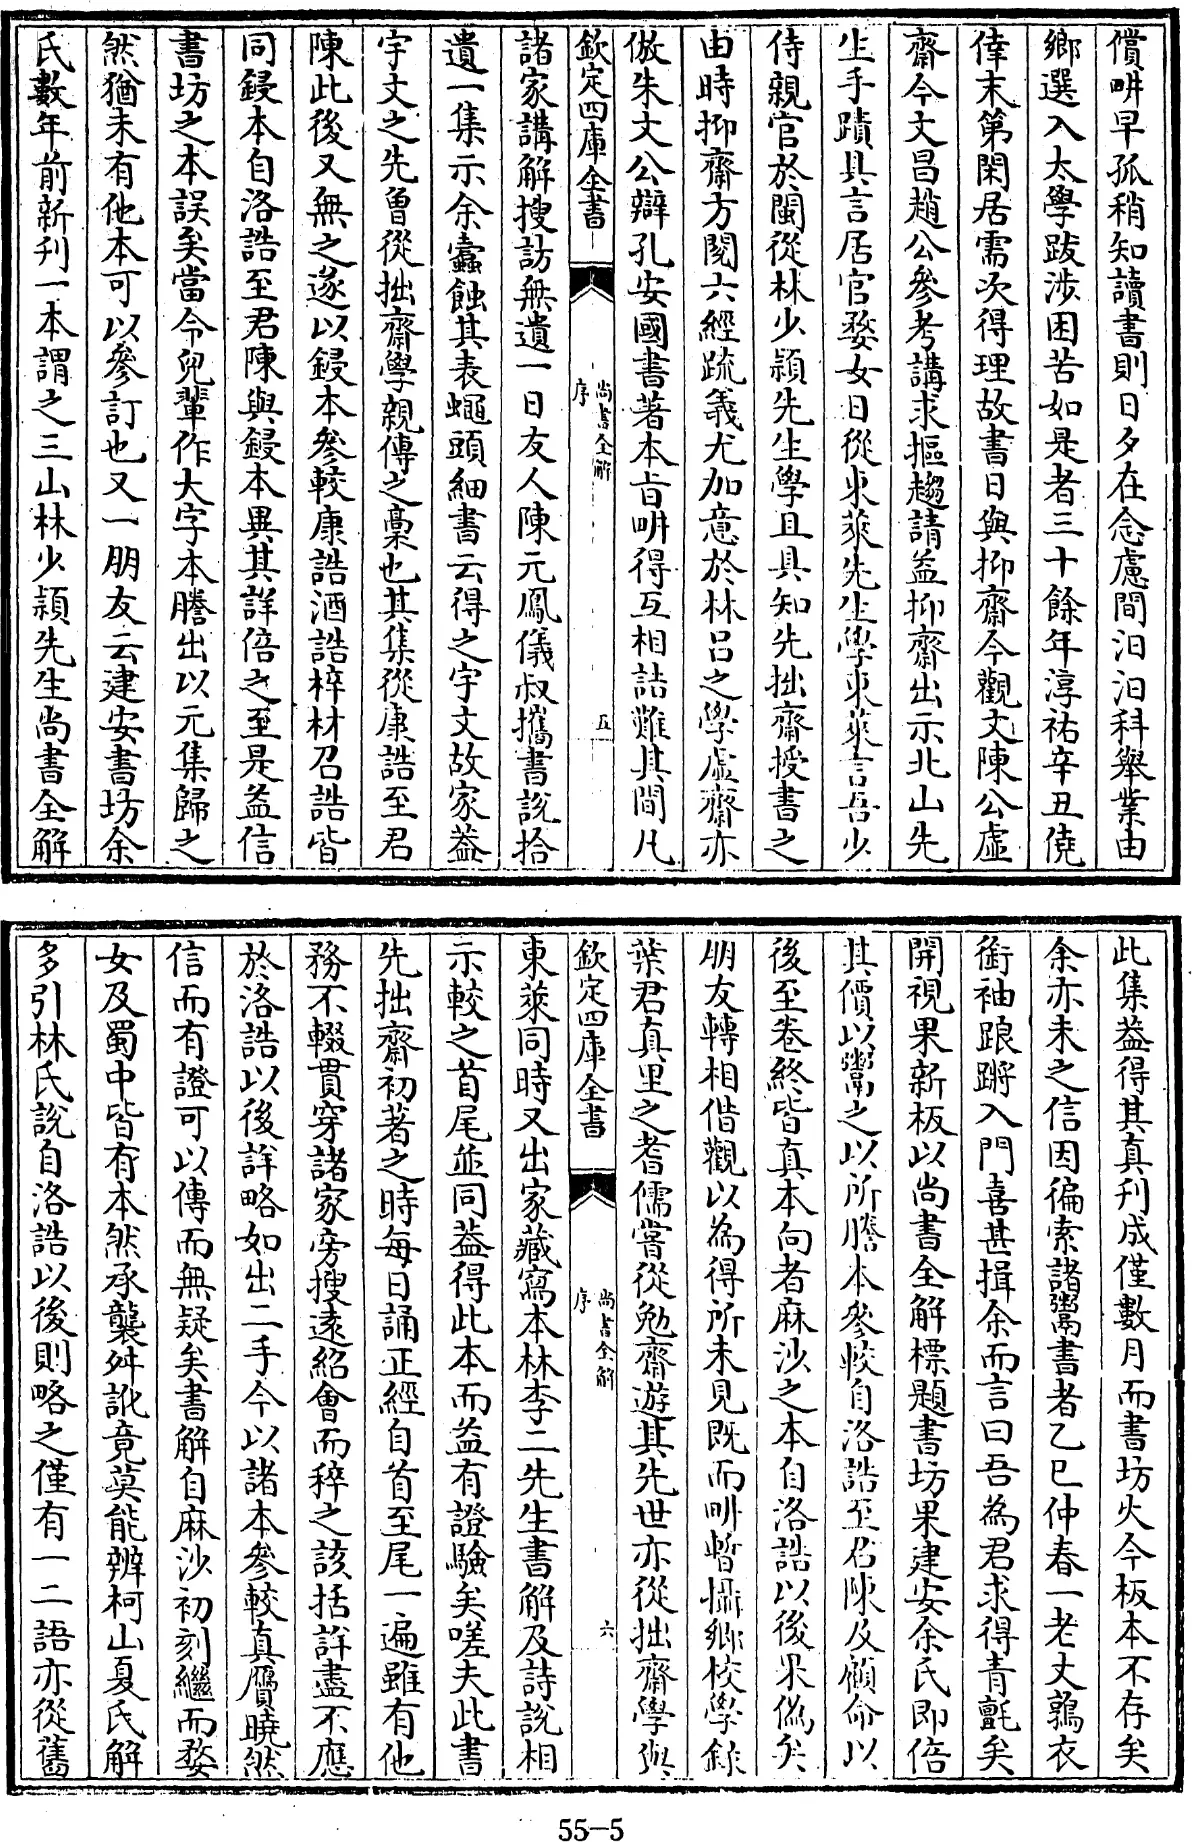 償畊早孤稍知讀書則日夕在念慮間汨汨科舉業由
鄉選入太學跋涉困苦如是者三十餘年淳祐辛丑僥
倖末第閑居需次得理故書日與抑齋今觀文陳公虛
齋今文昌趙公參考講求摳趨請益抑齋出示北山先
生手蹟具言居官婺女日從東萊先生學東萊言吾少
侍親官於閩從林少穎先生學且具知先拙齋授書之
由時抑齋方閱六經疏義尤加意於林呂之學虛齋亦
倣朱文公辯孔安國書著本旨畊得互相詰難其間凡
欽定四庫全書
尚書全解
序
五
諸家講解搜訪無遺一日友人陳元鳳儀叔攜書說拾
遺一集示余蠧蝕其表蠅頭細書云得之宇文故家葢
宇文之先曾從拙齋學親傳之稾也其集從康誥至君
陳此後又無之遂以鋟本參較康誥酒誥梓材召誥皆
同鋟本自洛誥至君陳與鋟本異其詳倍之至是益信
書坊之本誤矣當令兒輩作大字本謄出以元集歸之
然猶未有他本可以參訂也又一朋友云建安書坊余
氏數年前新刋一本謂之三山林少穎先生尚書全解
此集葢得其真刋成僅數月而書坊火今板本不存矣
余亦未之信因徧索諸鬻書者乙巳仲春一老丈鶉衣
銜袖踉蹡入門喜甚揖余而言曰吾為君求得青氊矣
開視果新板以尚書全解標題書坊果建安余氏即倍
其價以鬻之以所謄本參較自洛誥至君陳及顧命以
後至卷終皆真本向者麻沙之本自洛誥以後果偽矣
朋友轉相借觀以為得所未見既而畊暫攝鄉校學錄
葉君真里之耆儒嘗從勉齋遊其先世亦從拙齋學與
欽定四庫全書
尚書全解
序
六
東萊同時又出家藏寫本林李二先生書解及詩說相
示較之首尾並同葢得此本而益有證驗矣嗟夫此書
先拙齋初著之時每日誦正經自首至尾一遍雖有他
務不輟貫穿諸家旁搜遠紹會而稡之該括詳盡不應
於洛誥以後詳略如出二手今以諸本參較真贋曉然
信而有證可以傳而無疑矣書解自麻沙初刻繼而婺
女及蜀中皆有本然承襲舛訛竟莫能辨柯山夏氏解
多引林氏說自洛誥以後則略之僅有一二語亦從舊
55-5